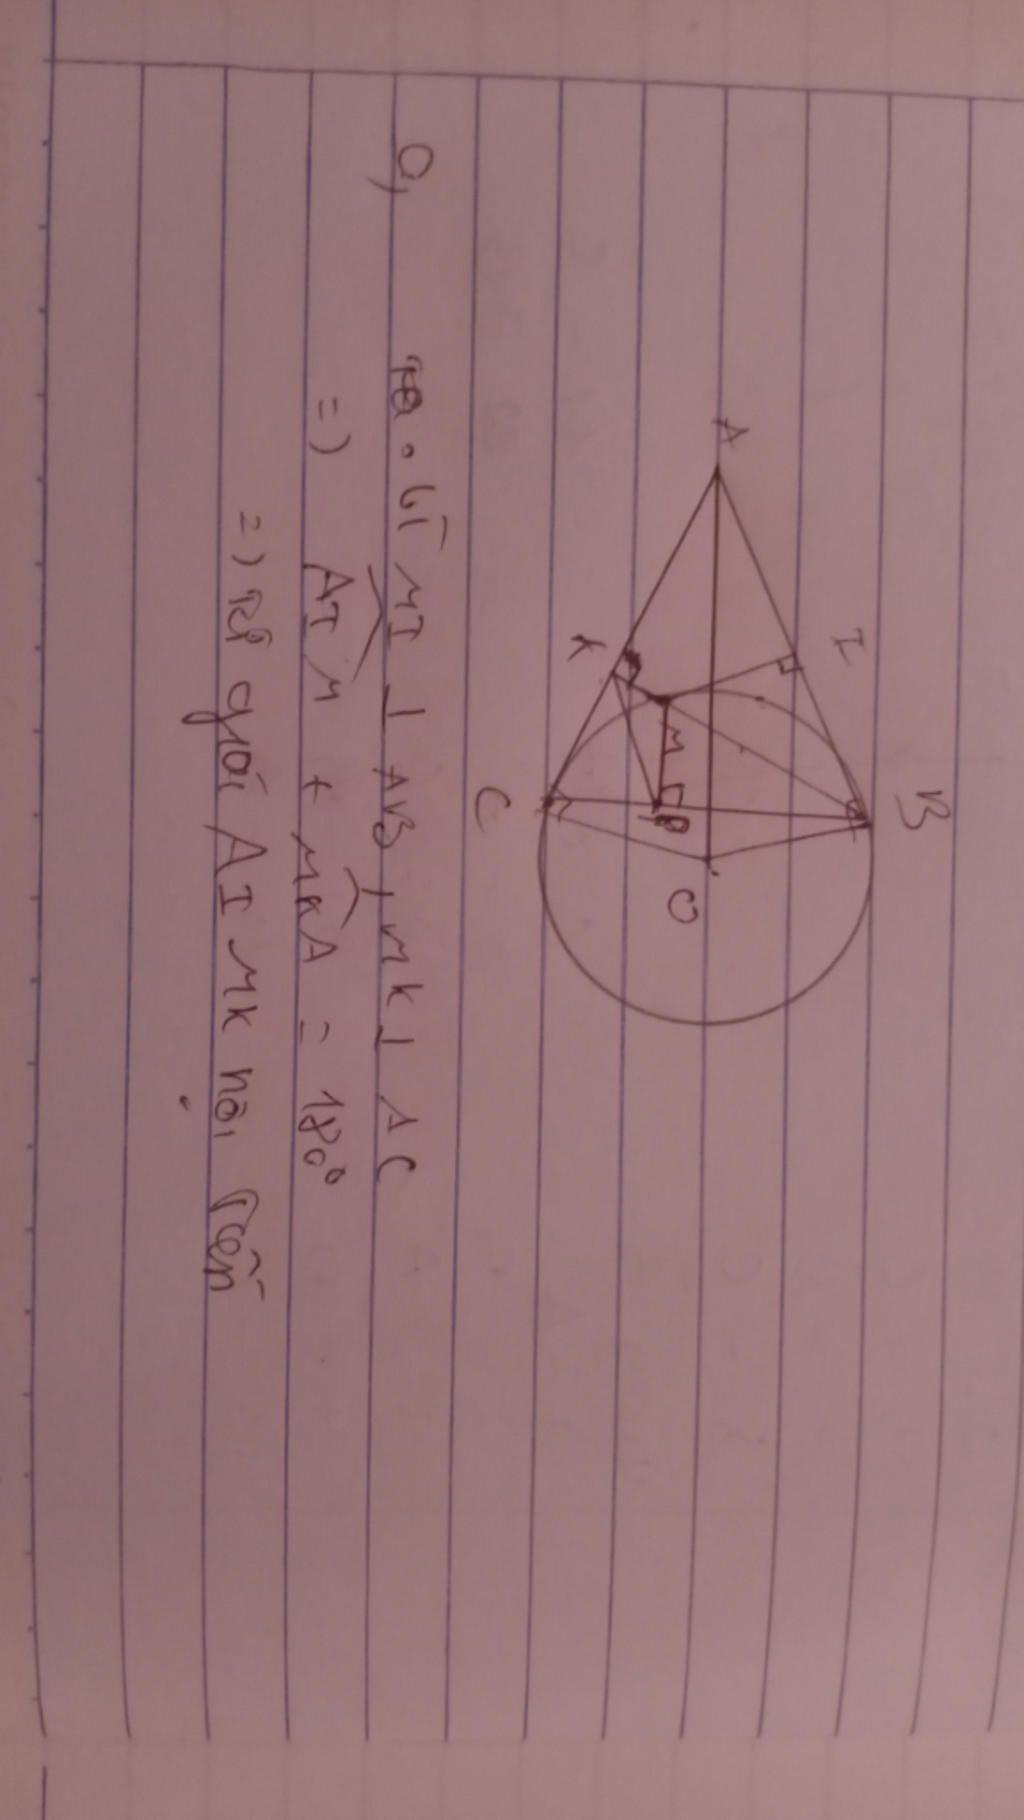 A
I
B
K
M
P
C
O
a,
Ta có MI ⊥ AB, MK ⊥ AC
=) AIM + MKA = 180°
=) tứ giác AIMK nội tiến